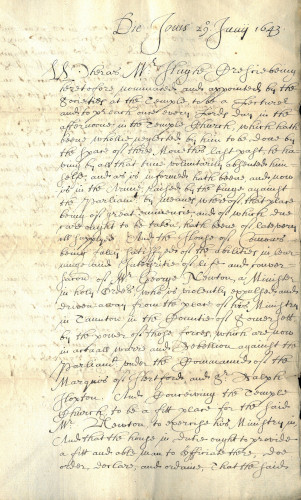 Die Jovis 29º Junij 1643
Whereas Mr Hugh Cressie being
heretofore nominated and appointed by the
Societies at the Temple to be a Lecturer
and to preach once every Lords day in the
afternoone in the Temple Church, which hath
beene whollie neglected by him to be done by
the space of three Moneths last past, he ha-
ving by all that time voluntarily absented him
selfe, and as is informed hath beene, and now
is in the Armie raised by the kinge against
the Parliamt by meanes whereof that place
being of great eminence, and of which due
care ought to be taken, hath beene of late very
ill supplied And the House of Comons
being fully satisfied of the abilities in lear-
ninge and integritie of life and conver-
sacion of Mr George Newton, a Minister
in holy Orders, who is violently expulsed and
driven away from the place of his Ministry
in Taunton in the Countie of Somersett
by the power of those forces which are now
in actuall warre and Rebellion against the
Parliamt under the Commaund of the
Marques of Hertford, and Sr Ralph
Hopton. And Conceiving the Temple
Church to be a fitt place for the said
Mr Newton to exercise his Ministry in,
And that the house in dutie ought to provide
a fitt and able man to Officiate there, doe
order, declare, and ordaine, That the said